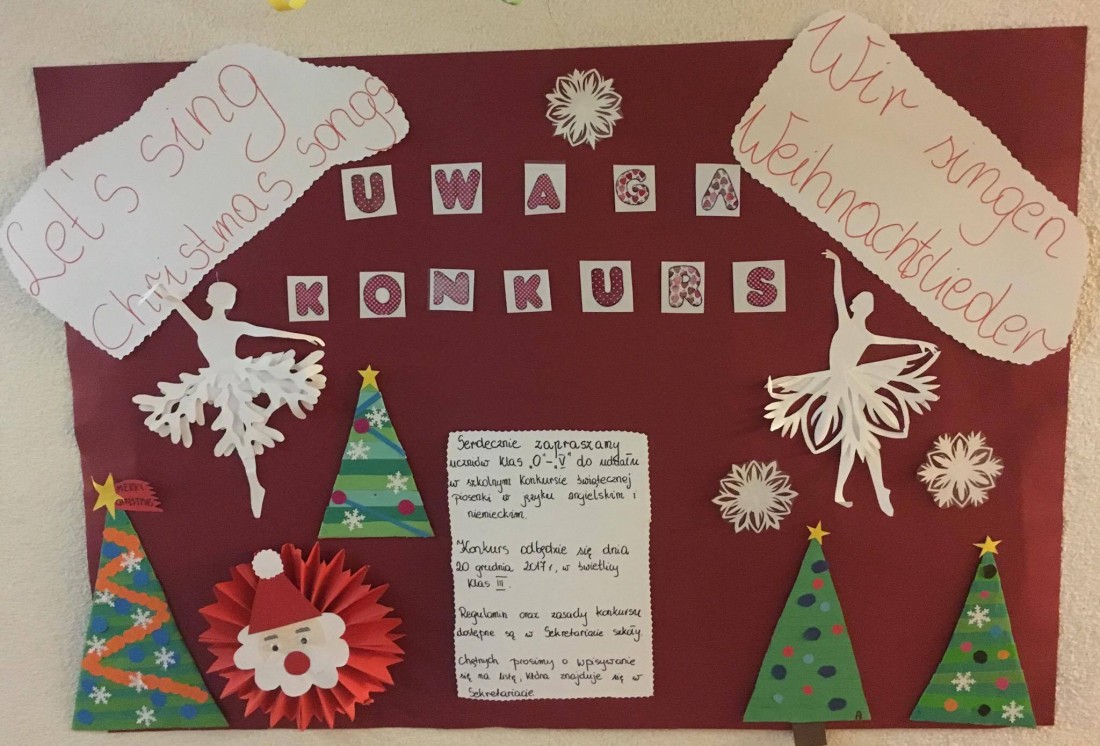 Let's sing
Christmas songs
Wir singen
Weihnachtslieder
UWAGA
KONKURS
MERRY
CHRISTMAS
Serdecznie zapraszamy
uczniów klas „0"-„V" do udziału
w szkolnym Konkursie świątecznej
piosenki w języku angielskim i
niemieckim.
Konkurs odbędzie się dnia
20 grudnia 2017r, w świetlicy
klas III.
Regulamin oraz zasady konkursu
dostępne są w Sekretariacie szkoły.
Chętnych prosimy o wpisywanie
się na listę, która znajduje się w
Sekretariacie